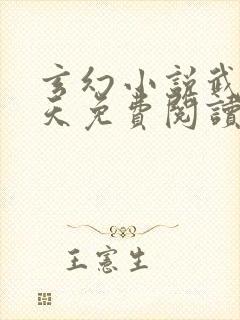 玄幻小説武
天免費閱讀
王憲生